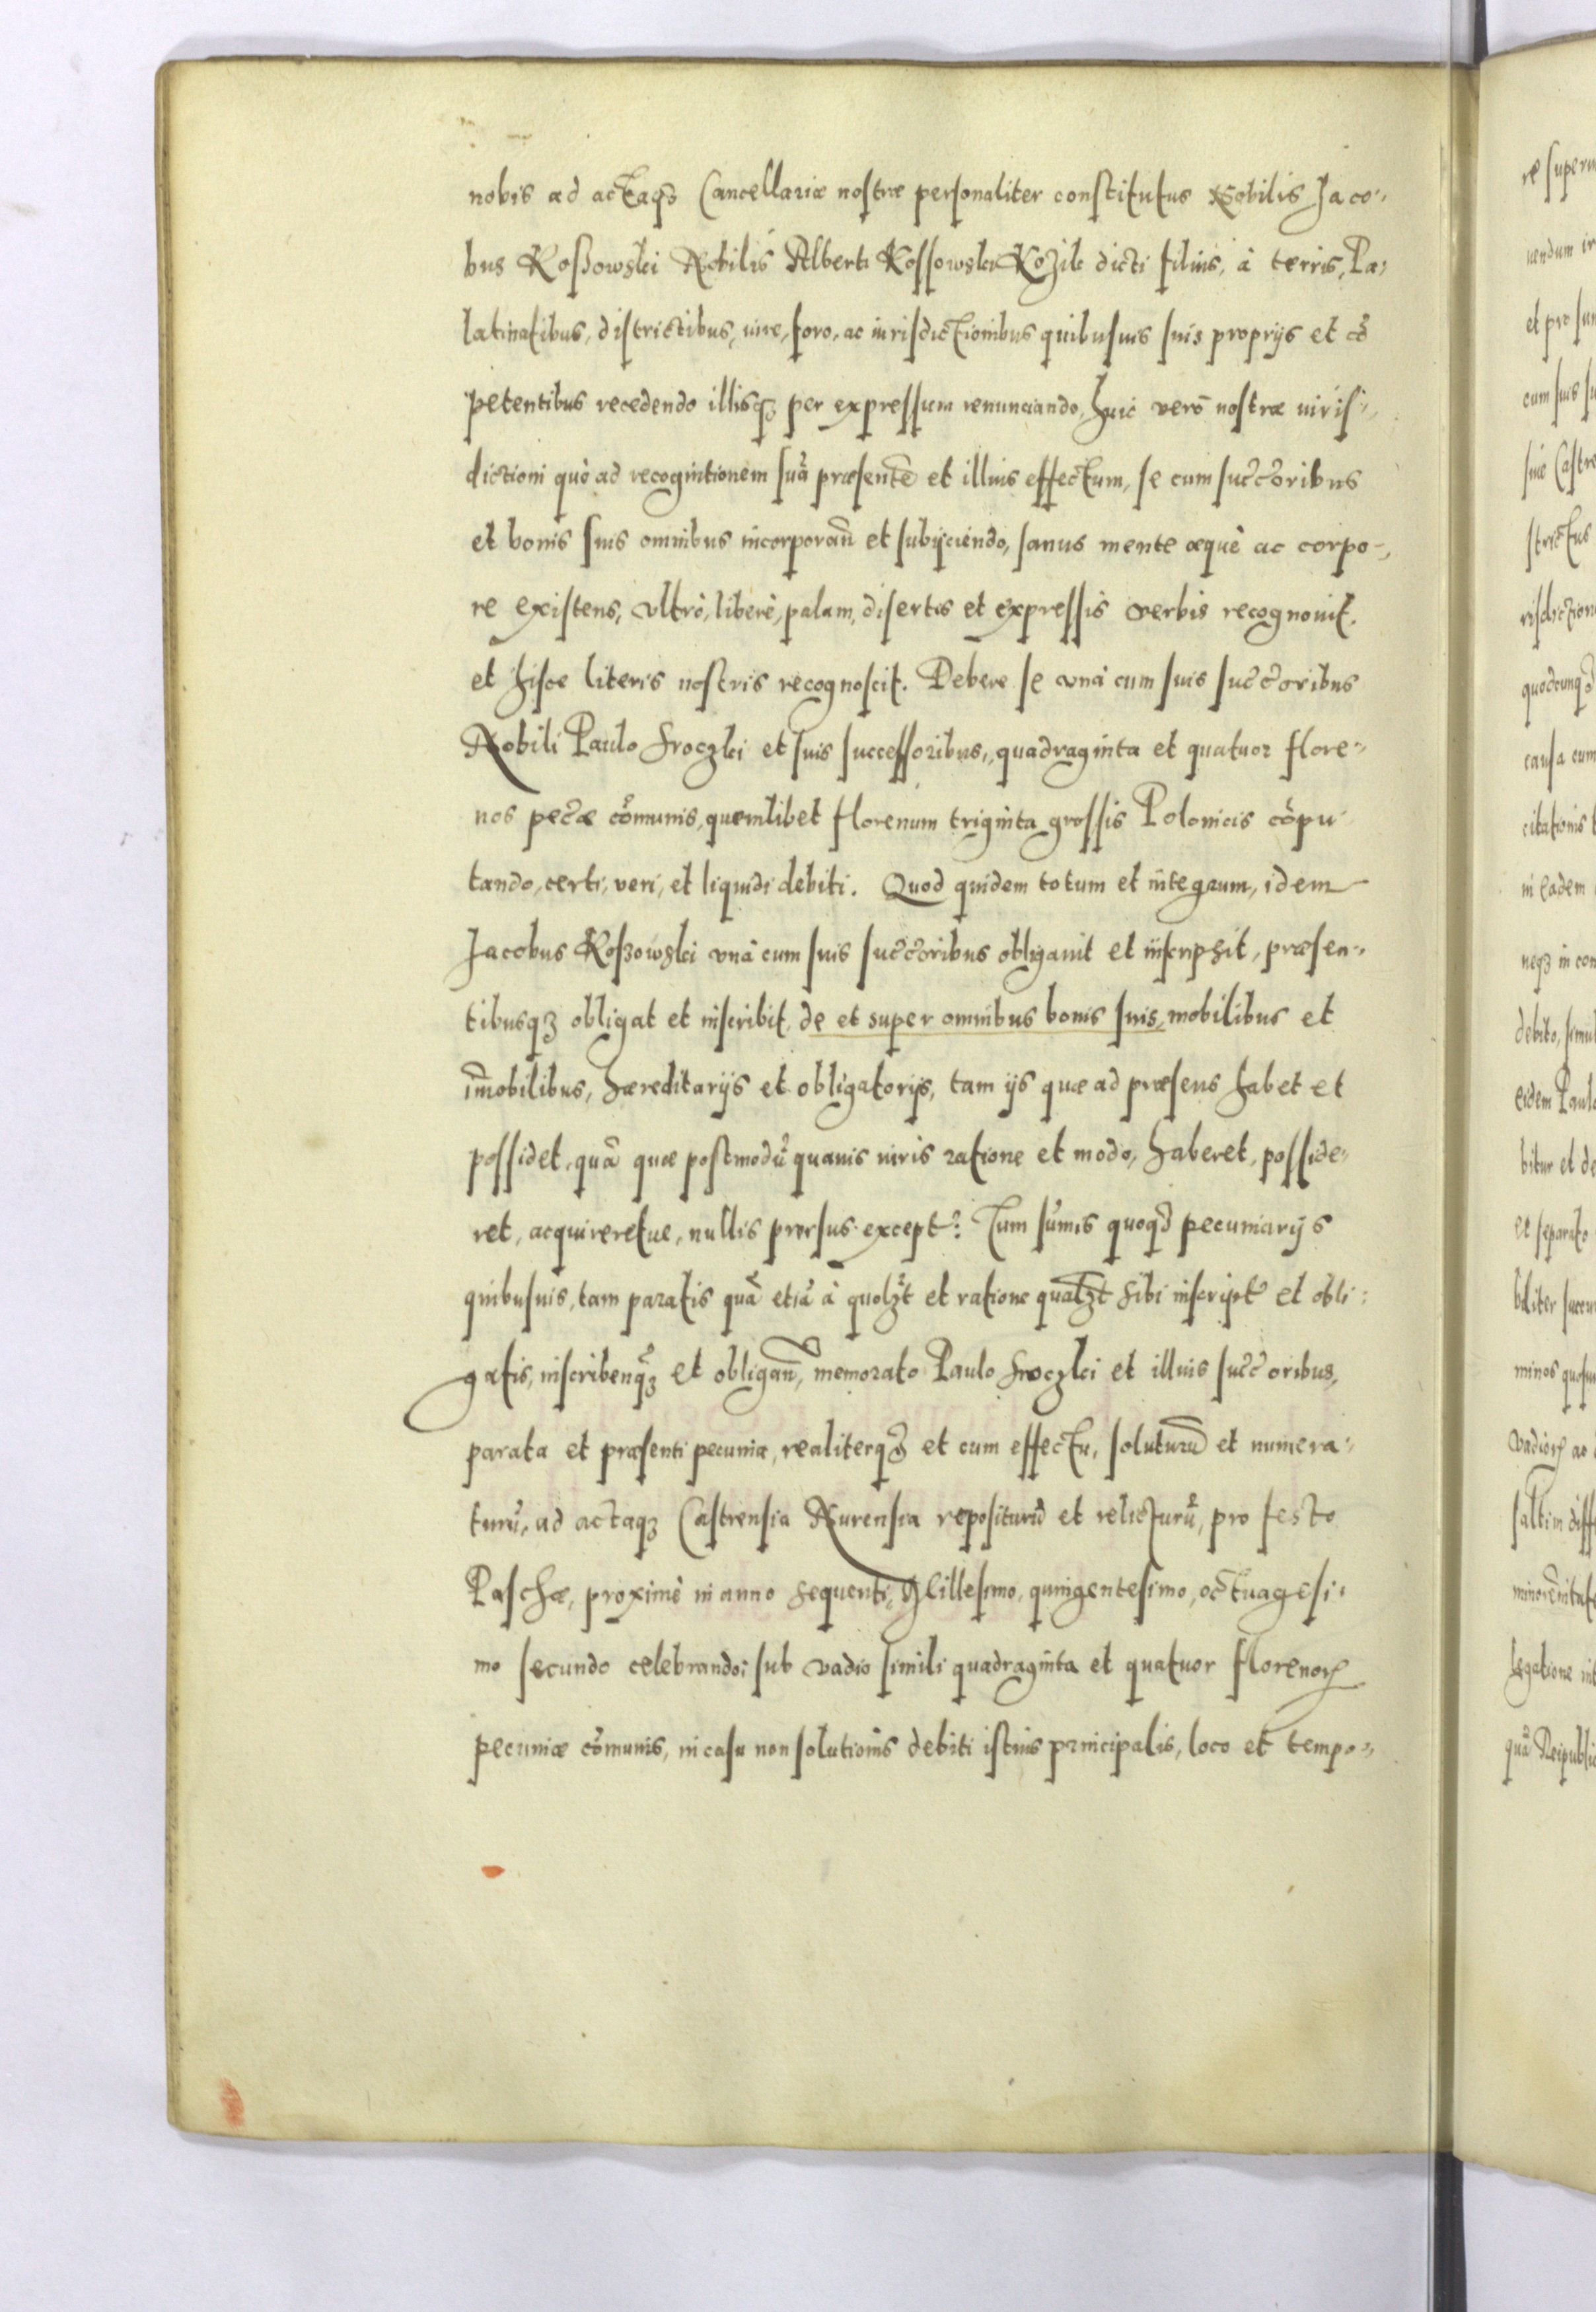 nobis ad actaqꝫ Cancellariæ nostræ personaliter constitutus Nobilis Jaco-
bus Koßowski Nobilis Alberti Kossowski Kozik dicti filius, à terris, Pa-
latinatibus, districtibus, iure, foro, ac iurisdictionibus quibusuis suis proprijs et cõ
petentibus recedendo illisqꝫ per expressum renunciando, huic verò nostræ iuris-
dictioni quò ad recognitionem suã præsentẽ et illius effectum, se cum succ̃oribus
et bonis suis omnibus incorporan̄ et subijciendo, sanus mente æquè ac corpo-
re existens, vltrò, liberè, palam, disertis et expressis verbis recognouit,
et hisce literis nostris recognoscit. Debere se vnà cum suis succ̃oribus
Nobili Paulo Kroczki et suis successoribus, quadraginta et quatuor flore-
nos pec̃æ cõmunis, quemlibet florenum triginta grossis Polonicis cõpu
tando, certi, veri, et liquidi debiti. Quod quidem totum et integrum, idem
Jacobus Koßowski vnà cum suis succ̃oribus obligauit et inscripsit, præsen-
tibusqꝫ obligat et inscribit, de et super omnibus bonis suis, mobilibus et
im̄obilibus, hæreditarijs et obligatorijs, tam ijs quæ ad præsens habet et
possidet, quã quæ postmodũ quauis iuris ratione et modo, haberet, posside-
ret, acquireretue, nullis prorsus except̃. Tum sum̃is quoqꝫ pecuniarijs
quibusuis, tam paratis quã etiã à quolꝫt et ratione qualꝫt sibi inscript̃ et obli:
gatis, inscribenqꝫ et obligan̄, memorato Paulo Kroczki et illius succ̃oribus,
parata et præsenti pecunia, realiterqꝫ et cum effectu, soluturũ et numera-
turũ, ad actaqꝫ Castrensia Nurensia repositurũ et relicturũ, pro festo
Paschæ, proximè in anno sequenti, Millesimo, quingentesimo, octuagesi-
mo secundo celebrando; sub vadio simili quadraginta et quatuor florenoꝝ
pecuniæ cõmunis, in casu non solutionis debiti istius principalis, loco et tempo-